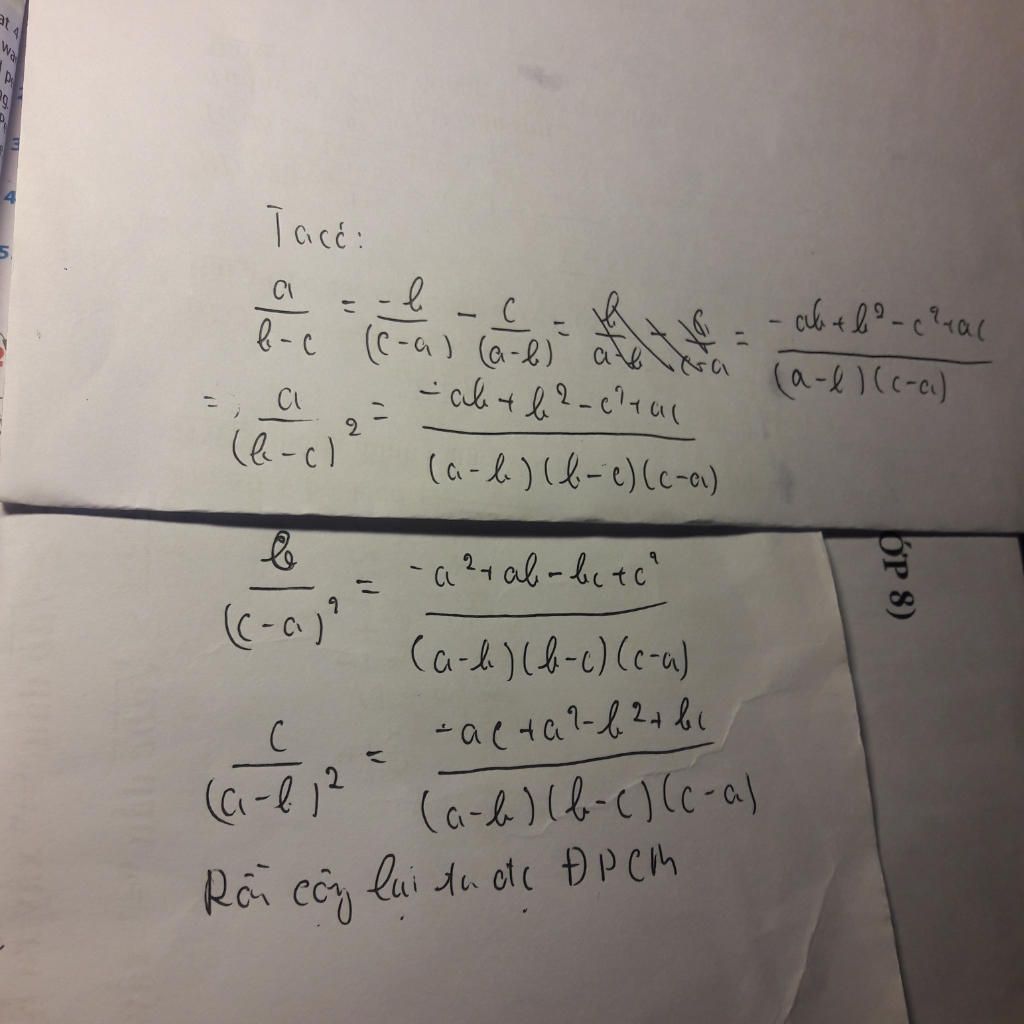 Ta có:
a/(b-c) = -b/(c-a) - c/(a-b) = b/(a-b) + c/(c-a) = (-ab+b²-c²+ac)/((a-b)(c-a))
=> a/(b-c)² = (-ab+b²-c²+ac)/((a-b)(b-c)(c-a))
b/(c-a)² = (-a²+ab-bc+c²)/((a-b)(b-c)(c-a))
c/(a-b)² = (-ac+a²-b²+bc)/((a-b)(b-c)(c-a))
Rồi cộng lại ta đc ĐPCM
ỚP 8)
3
4
5.